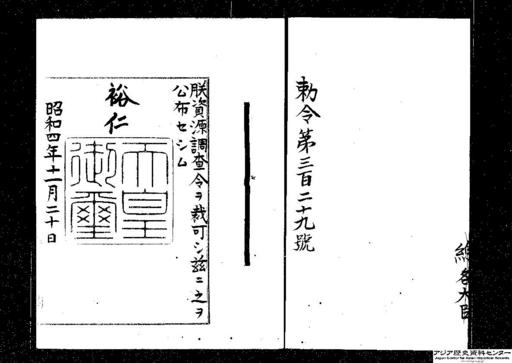 勅令第三百二十九號
朕資源調査令ヲ裁可シ茲ニ之ヲ
公布セシム
裕仁
天皇
御璽
昭和四年十一月二十日
總各大臣
アジア歴史資料センター
Japan Center for Asian Historical Records